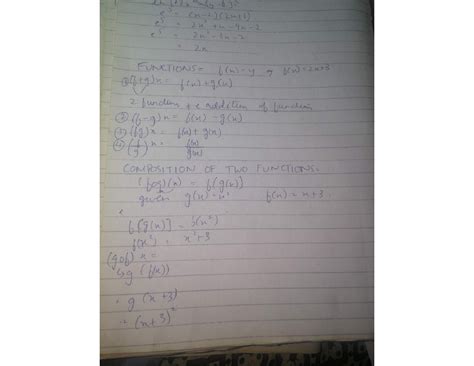 e⁵ = (x-2)(2x+1)
e⁵ = 2x² + x - 4x - 2
e⁵ = 2x² - 3x - 2
= 2x
FUNCTIONS= f(x)=y f(x)=2x+3
① (f+g)x = f(x)+g(x)
2 functions addition of functions
② (f-g)x = f(x)-g(x)
③ (fg)x = f(x) + g(x)
④ (f/g)x = f(x)/g(x)
COMPOSITION OF TWO FUNCTIONS.
(fog)(x) = f(g(x))
given g(x)=x² f(x)=x+3
f[g(x)] = f(x²)
f(x²) = x²+3
(gof)x =
g(f(x))
g(x+3)
(x+3)²